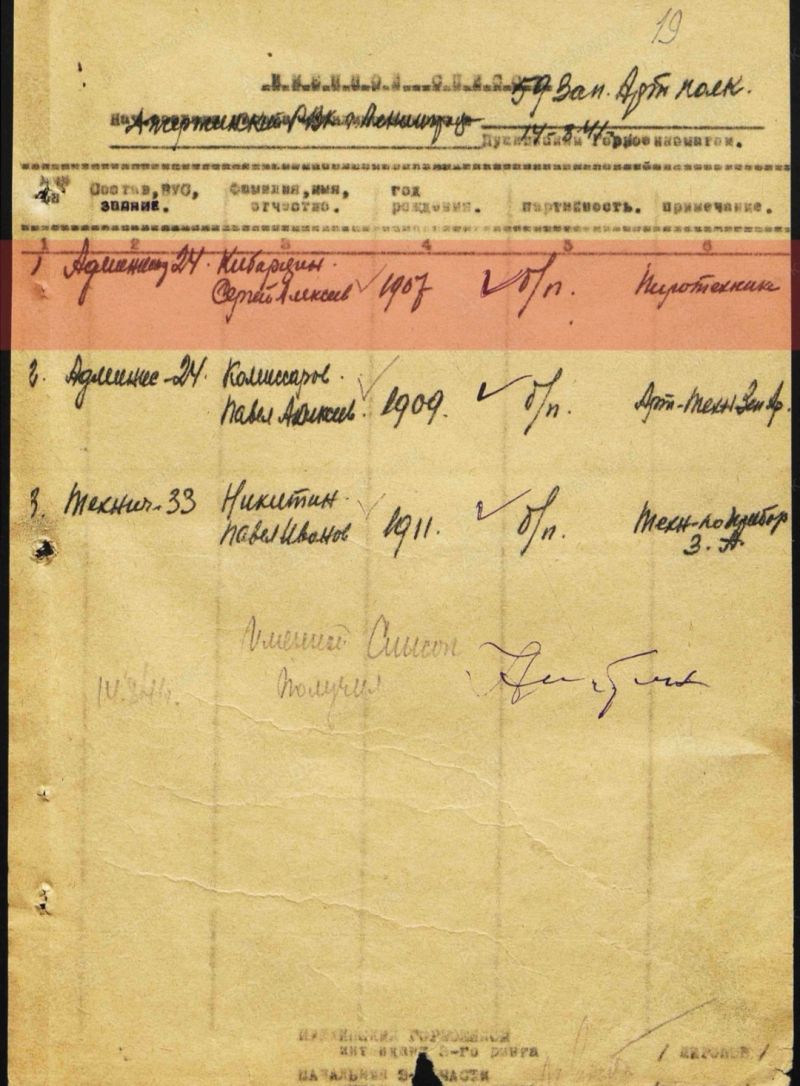 19
ИМЕННОЙ СПИСОК 59 Зап. Арт полк.
Дзержинский РВК г. Ленинграда 14-8-41
Пушкинским Горвоенкоматом.
Состав, ВУС, звание. Фамилия, имя, отчество. год рождения. партийность. примечание.
1 2 3 4 5 6
1 24. Кибардин.
Сергей Алексеев 1907 б/п. Пиротехник
2. Админис-24. Комиссаров.
Павел Алексеев. 1909. б/п. Арт-Техн Зен Ар.
3. Технич-33 Никитин.
Павел Иванов 1911. б/п. Техн-по прибор
З. А.
Именной Список
получил
ПУШКИНСКИЙ ГОРВОЕНКОМ
интендант 3-го ранга
НАЧАЛЬНИК 3- ЧАСТИ